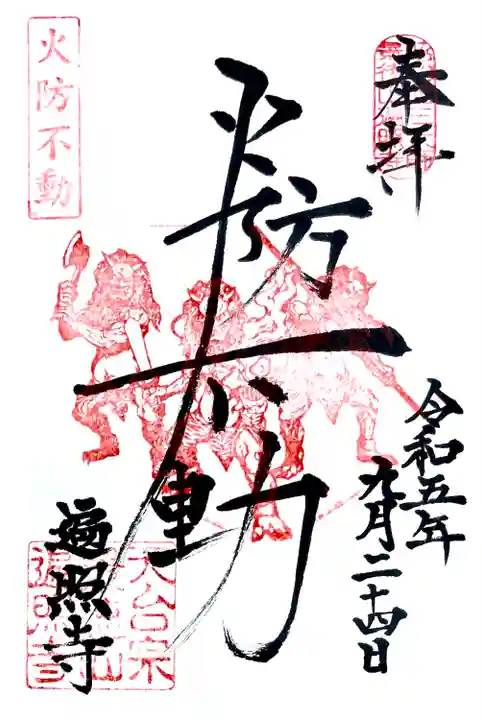 奉拝
令和五年
九月二十四日
火防不動
火防不動
遍照寺
天台宗